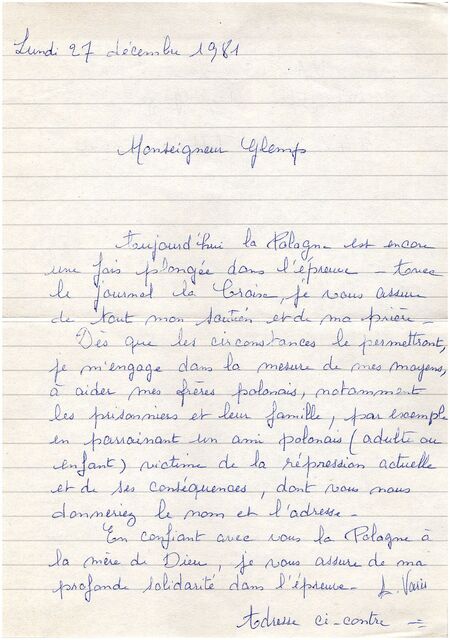 Lundi 27 décembre 1981
Monseigneur Glemp
Aujourd'hui la Pologne est encore
une fois plongée dans l'épreuve -
le journal la Croix, je vous assure
de tout mon soutien et de ma prière -
Dès que les circonstances le permettront,
je m'engage dans la mesure de mes moyens,
à aider mes frères polonais, notamment
les prisonniers et leur famille, par exemple
en parrainant un ami polonais (adulte ou
enfant) victime de la répression actuelle
et de ses conséquences, dont vous nous
donneriez le nom et l'adresse -
En confiant avec vous la Pologne à
la mère de Dieu, je vous assure de ma
profonde solidarité dans l'épreuve -
Adresse ci-contre